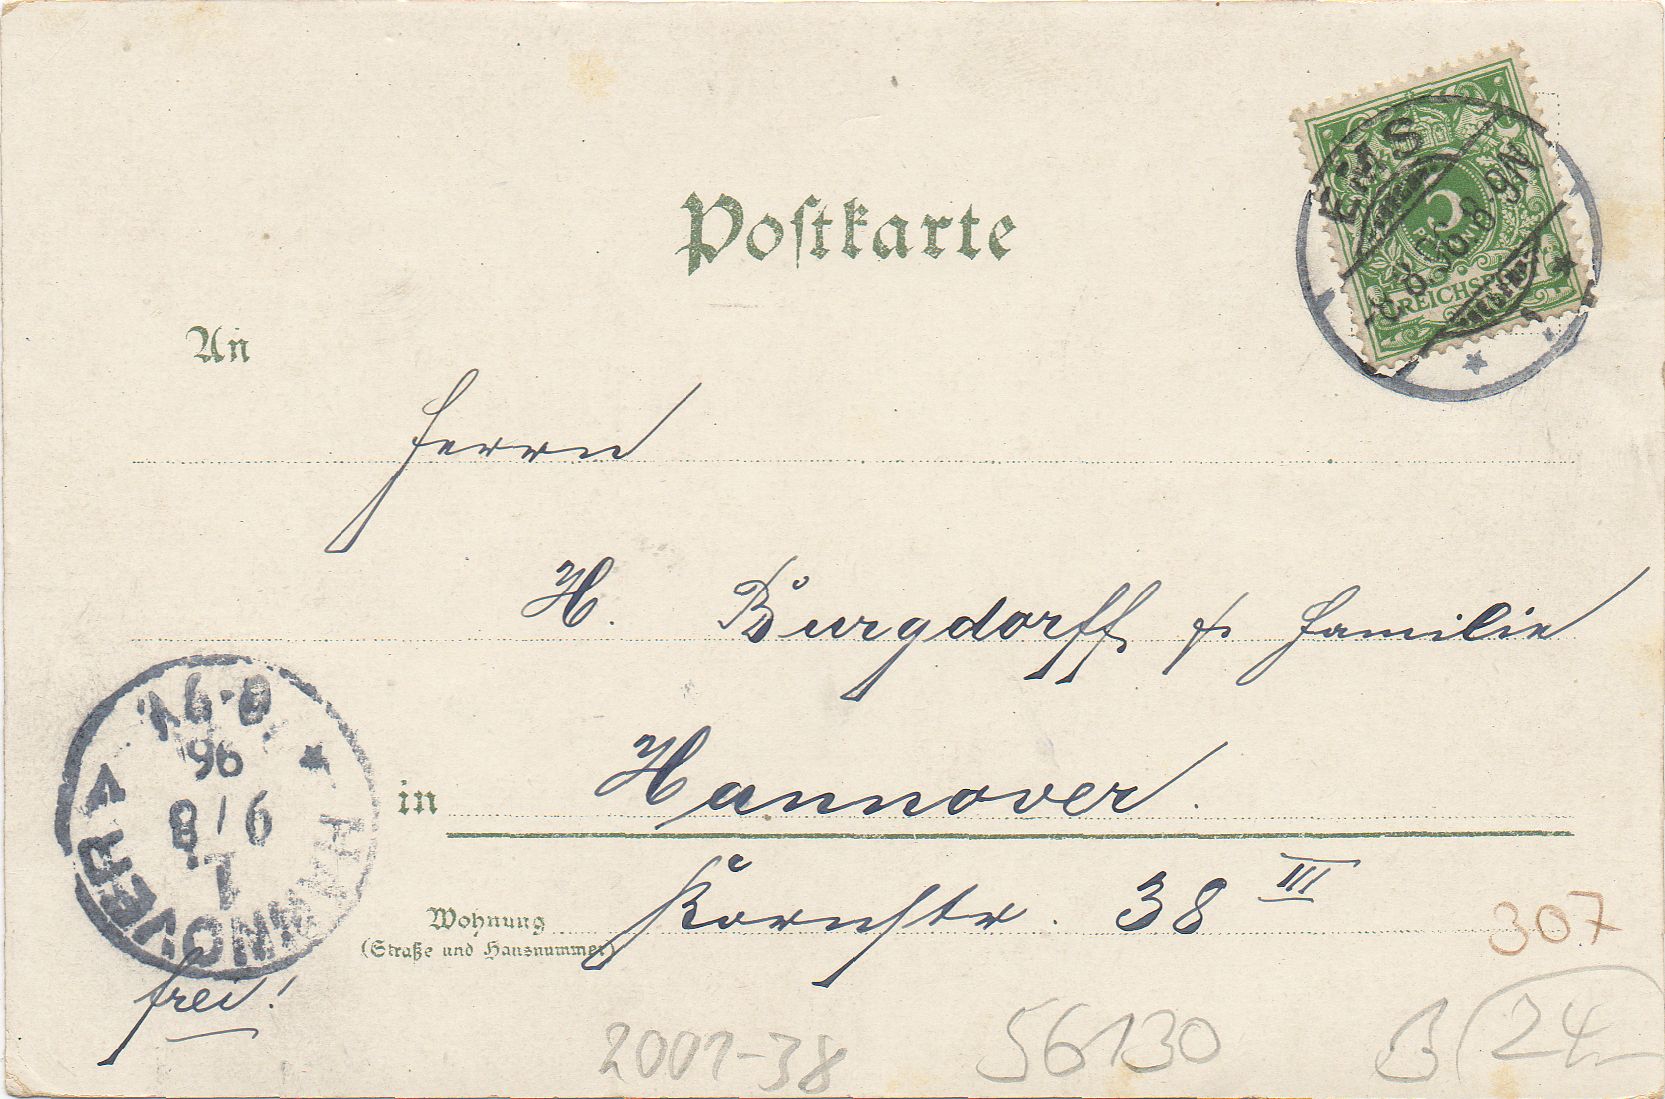 Postkarte
EMS
8.8.96.8-9N
REICHSPOST
An
Herrn
H. Burgdorff & Familie
in Hannover.
Wohnung
(Straße und Hausnummer)
Kornstr. 38 III
HANNOVER
1
9/8
96
8-9V.
frei!
307
2001-38
56130
24